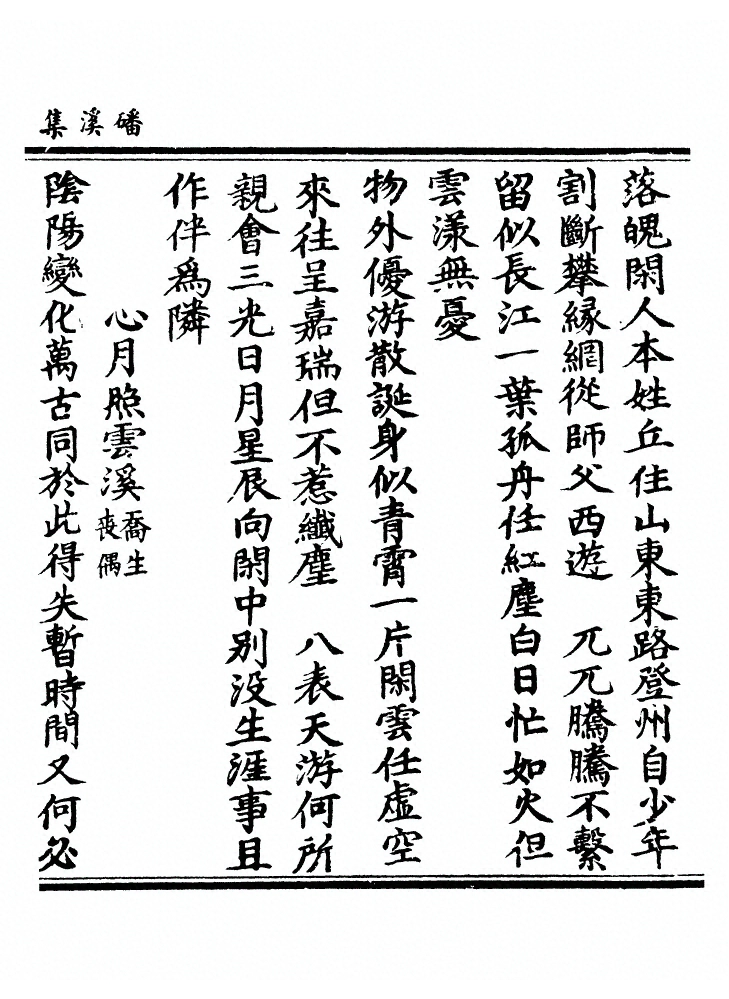 磻溪集
落魄閑人本姓丘住山東東路登州自少年
割斷攀緣網從師父西遊　兀兀騰騰不繫
留似長江一葉孤舟任紅塵白日忙如火但
雲漾無憂
物外優游散誕身似青霄一片閑雲任虛空
來往呈嘉瑞但不惹纖塵　八表天游何所
親會三光日月星辰向閑中別没生涯事且
作伴爲隣
心月照雲溪喬生喪偶
陰陽變化萬古同於此得失暫時間又何必